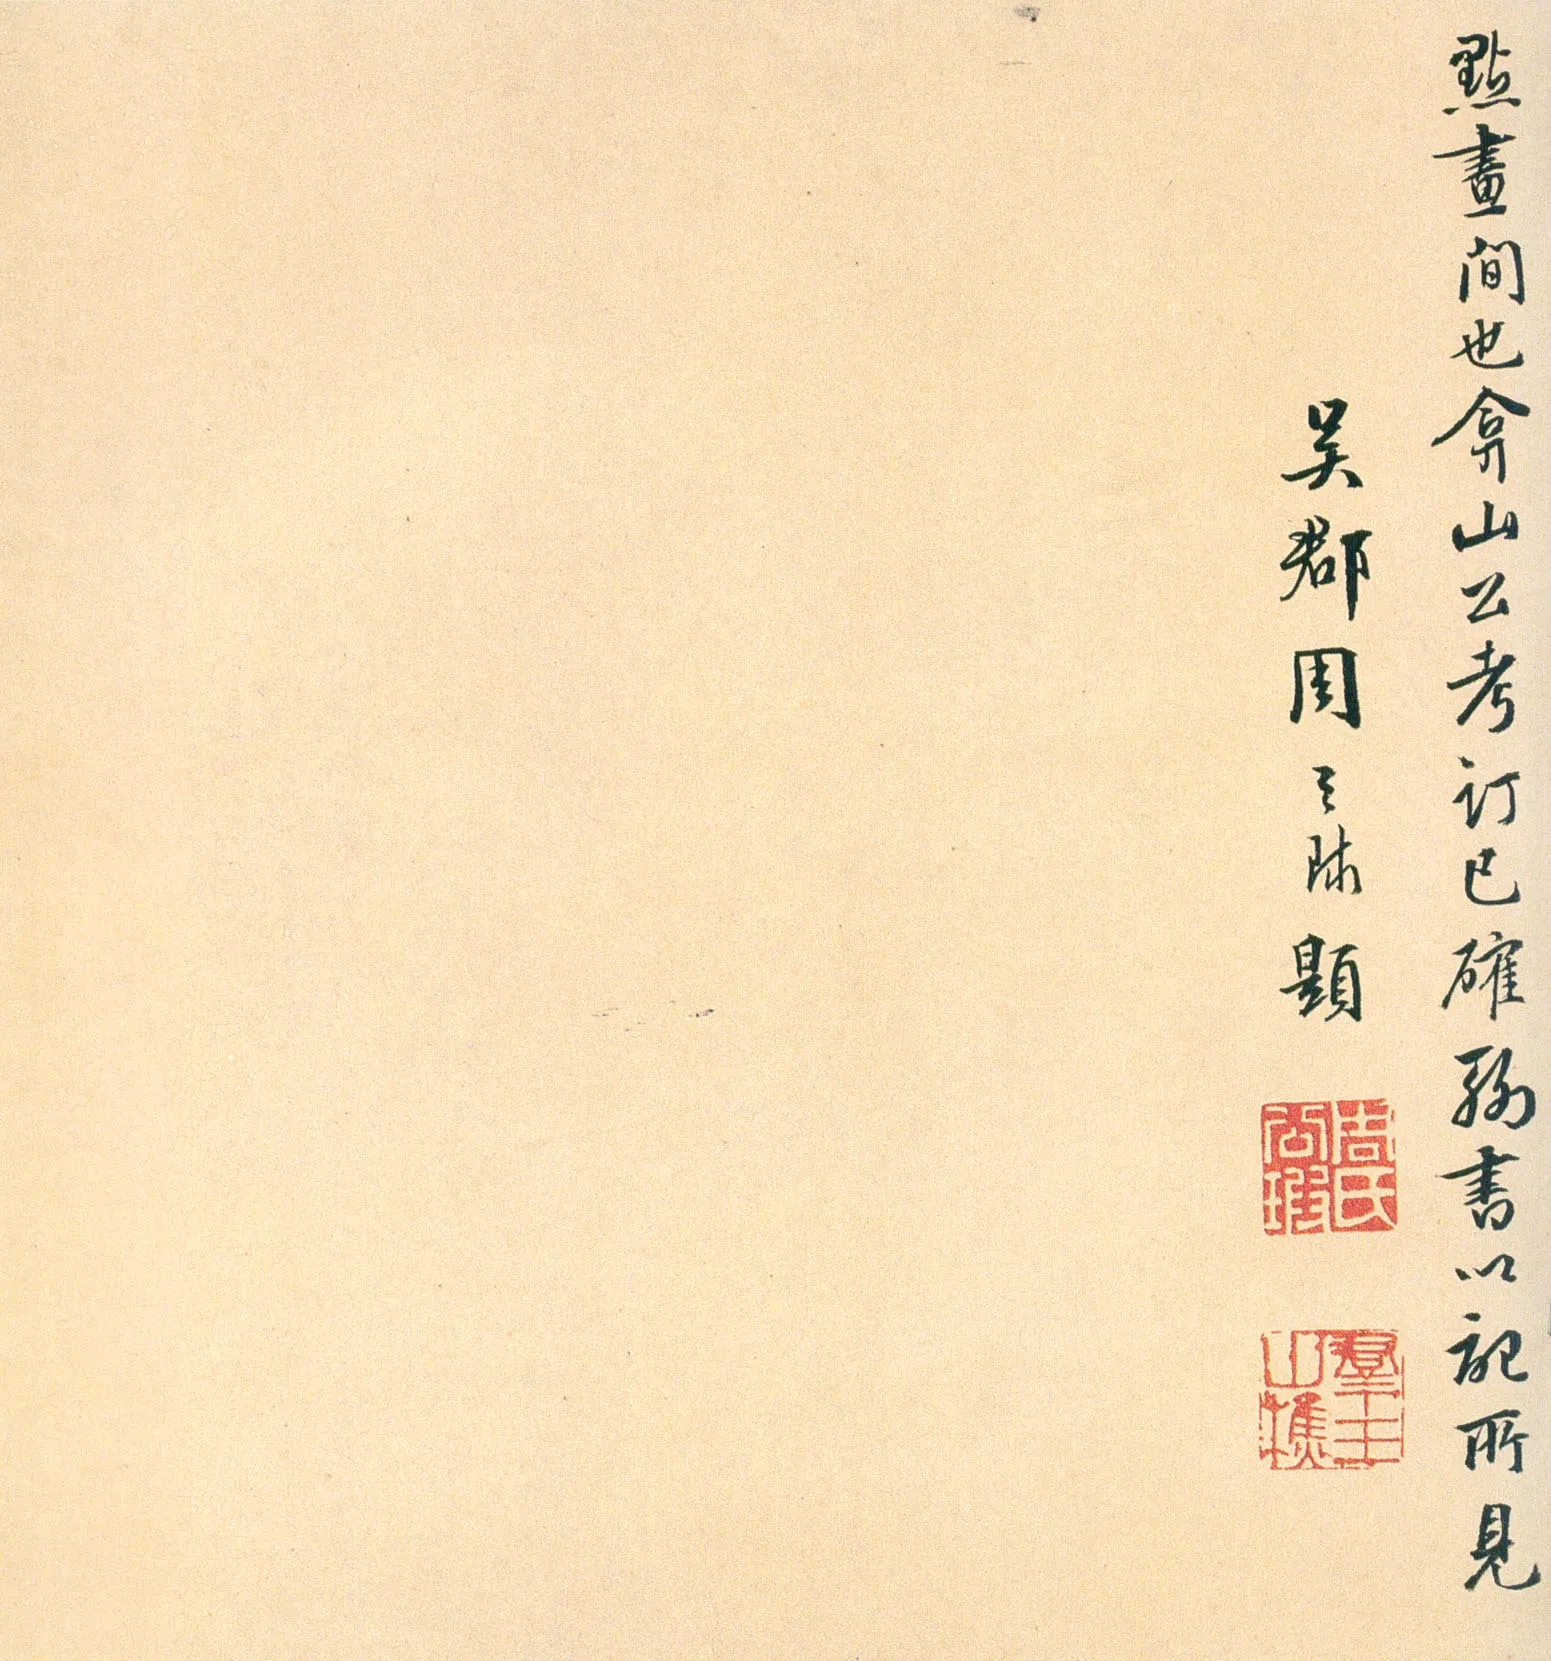 點畫間也弇山公考訂已確聊書以記所見
吳郡周天球題
周氏公瑕
羣玉山樵